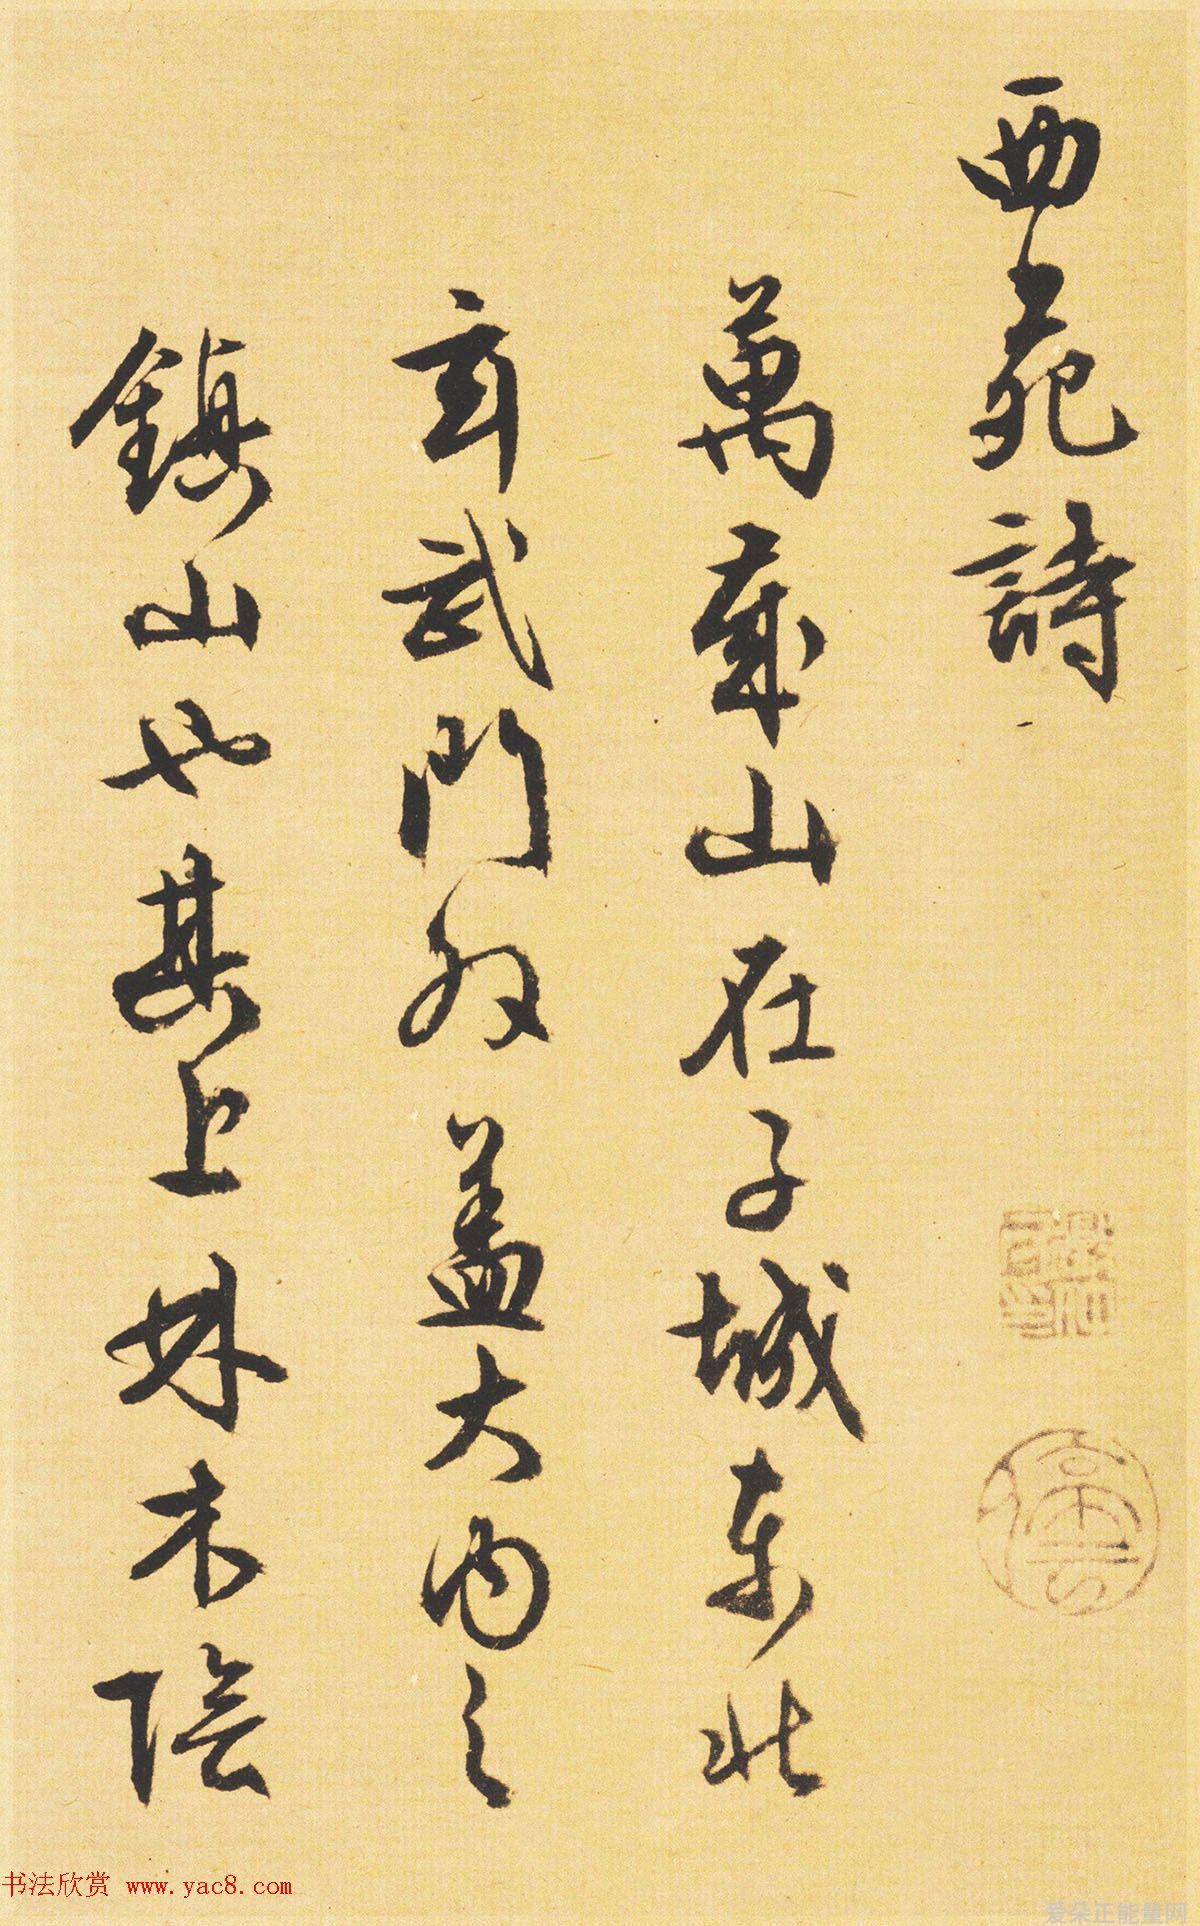 西苑詩
萬歲山在子城東北
玄武門外蓋大內之
鎮山也其上林木陰
书法欣赏 www.yac8.com
爱朵正能量网